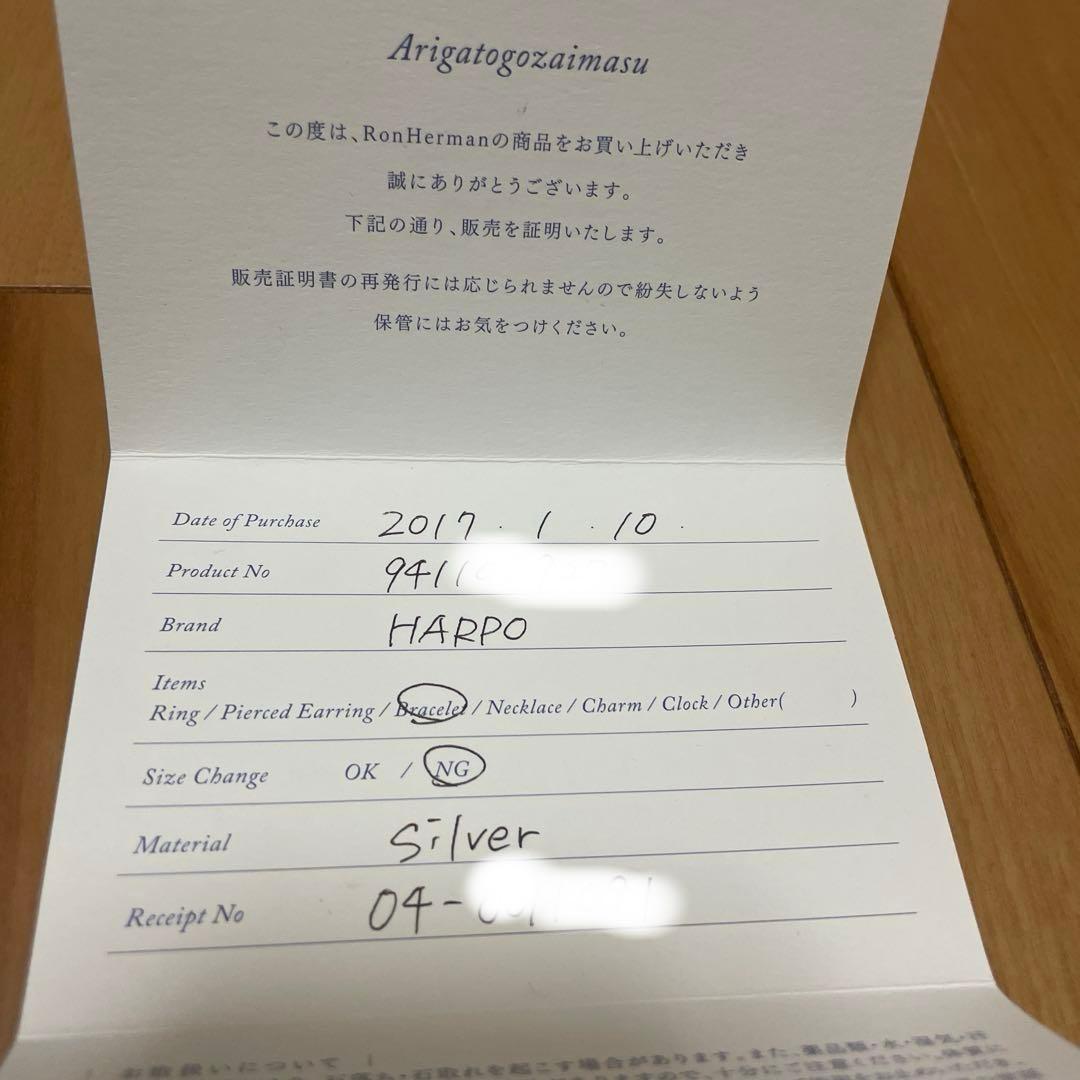 Arigatogozaimasu
この度は、RonHermanの商品をお買い上げいただき
誠にありがとうございます。
下記の通り、販売を証明いたします。
販売証明書の再発行には応じられませんので紛失しないよう
保管にはお気をつけください。
Date of Purchase 2017 . 1 . 10 .
Product No 9411
Brand HARPO
Items
Ring / Pierced Earring / Bracelet / Necklace / Charm / Clock / Other( )
Size Change OK / NG
Material Silver
Receipt No 04-
お取扱いについて
石取れを起こす場合があります。また、薬品類・水・湿気・汗